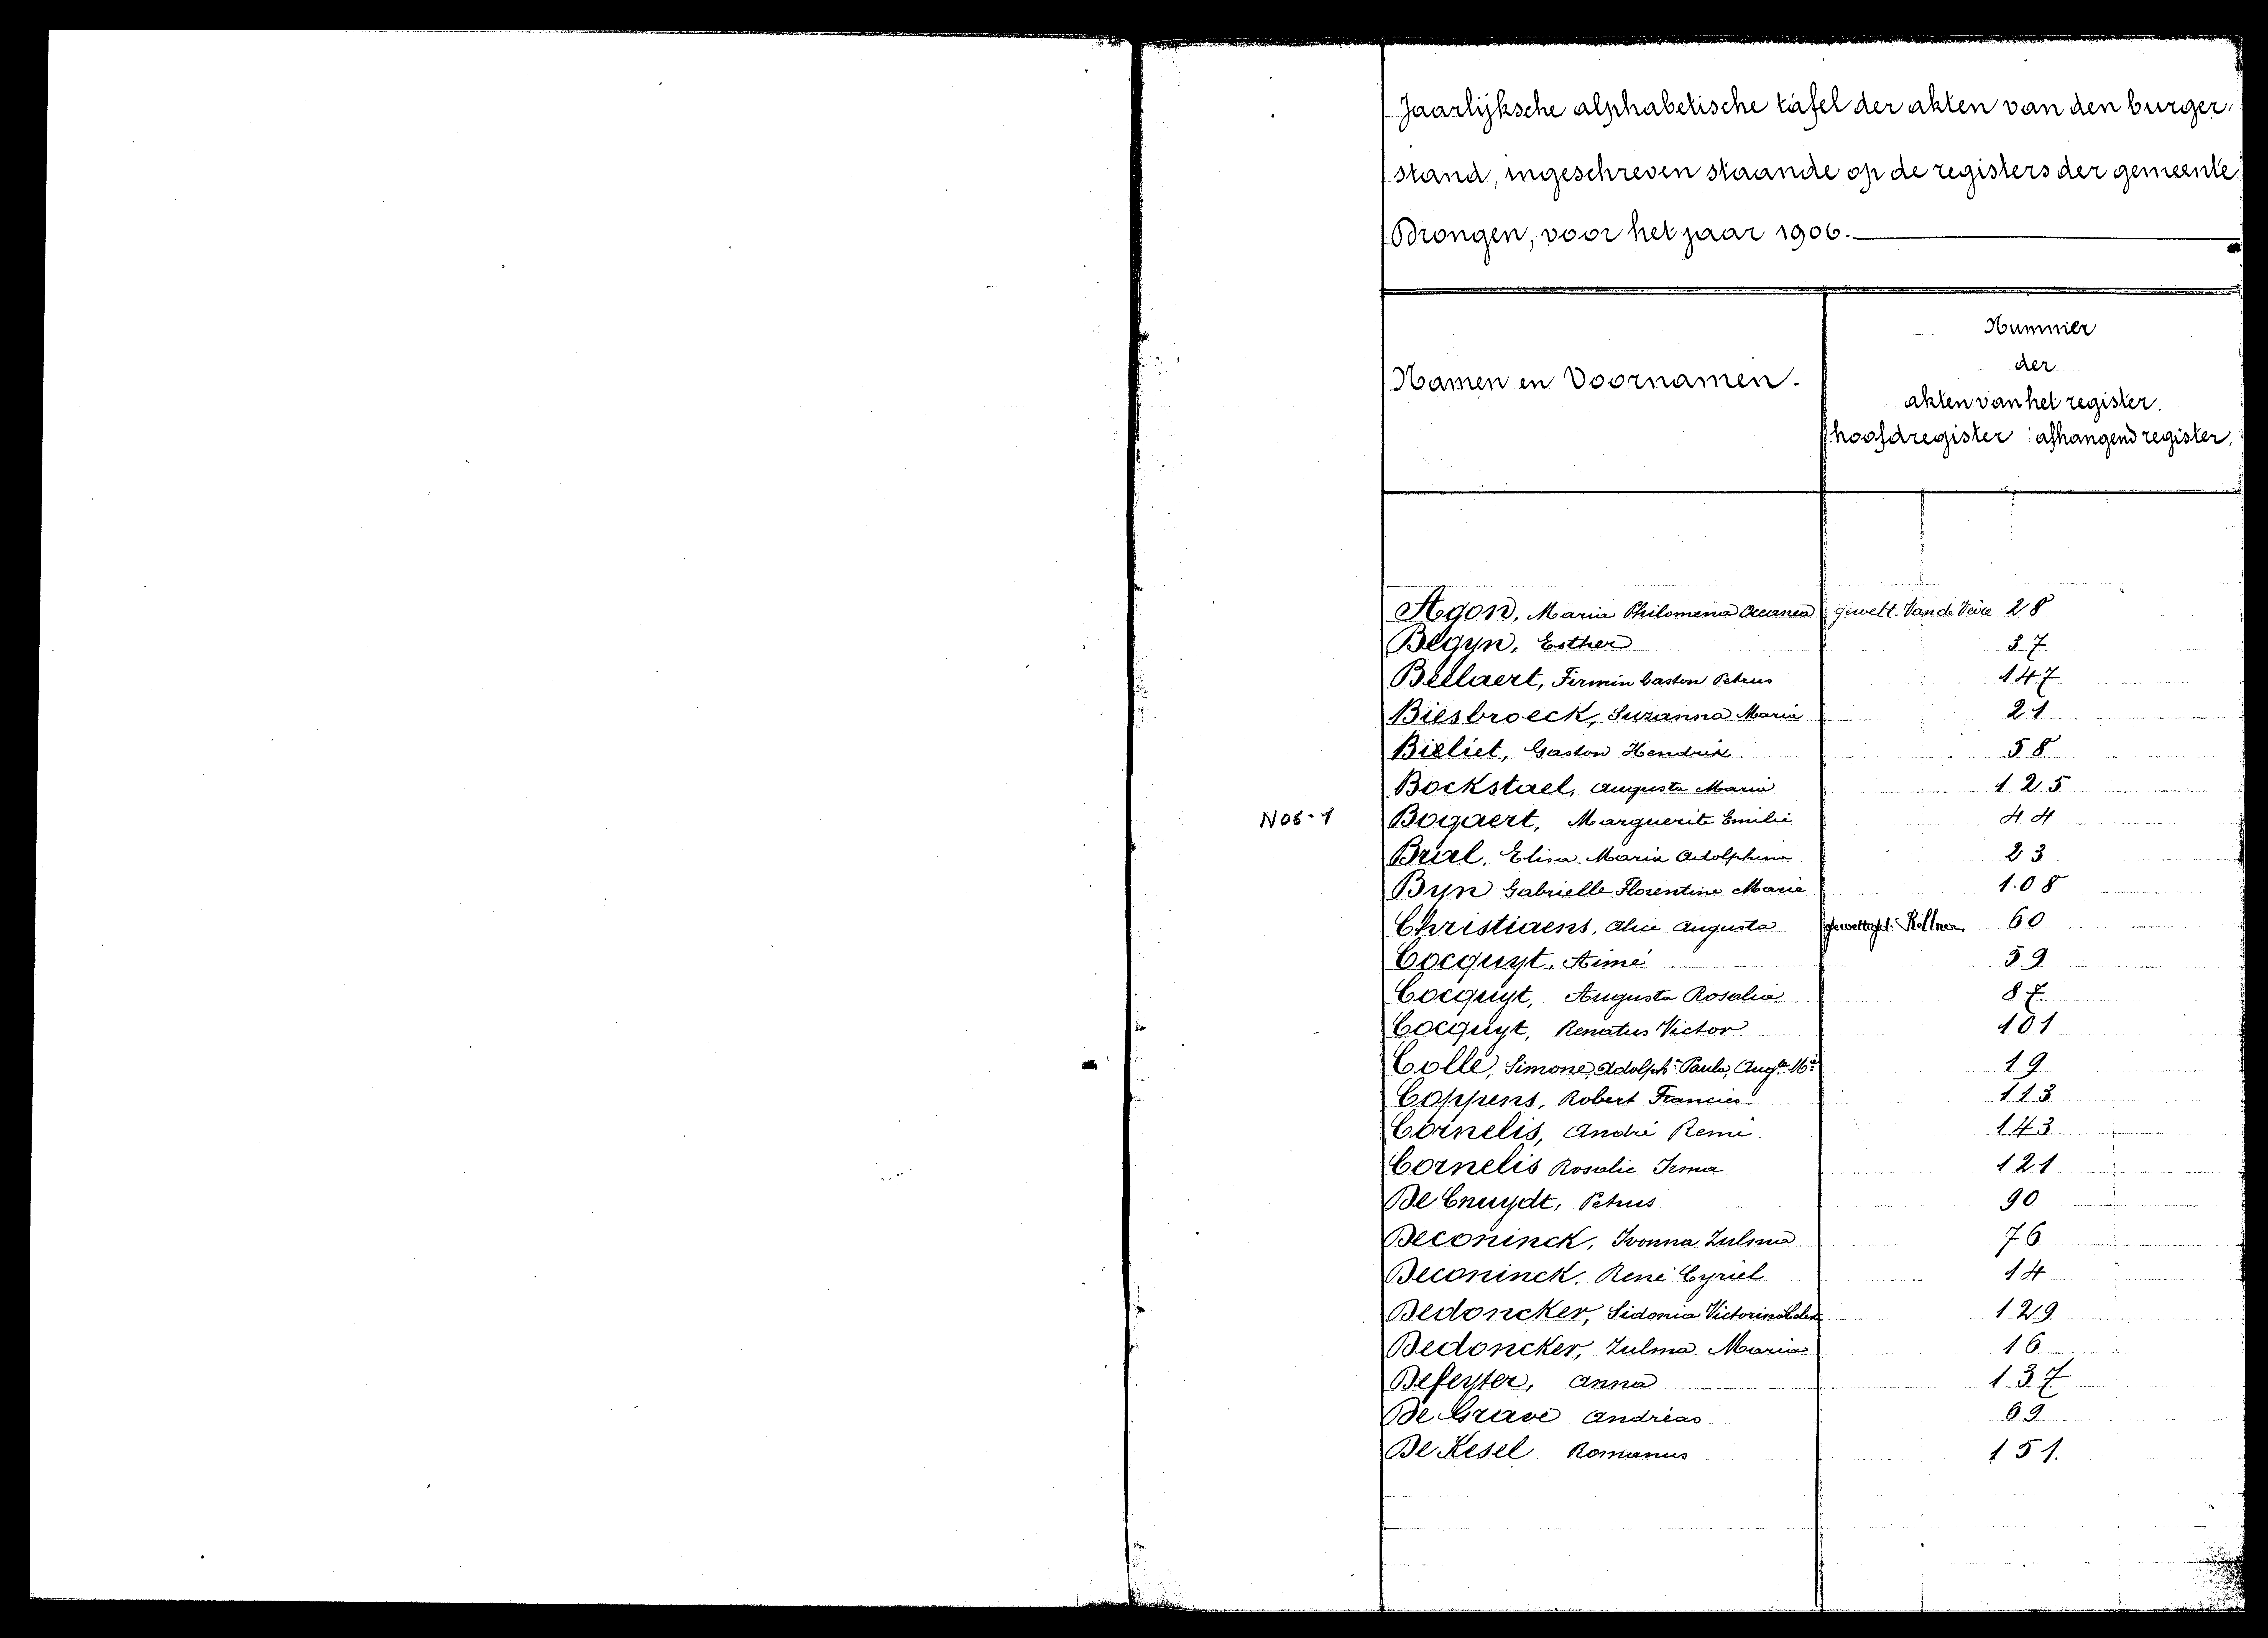 Jaarlijksche alphabetische tafel der akten van den burger
stand, ingeschreven staande op de registers der gemeente
Drongen, voor het jaar 1906.
Namen en Voornamen.
Nummer
der
akten van het register.
hoofdregister afhangend register.
Agon, Maria Philomena Oceanea gewett. Van de Veire 28
Begyn, Esther 37
Bellaert, Firmin Gaston Petrus 147
Biesbroeck, Suzanna Maria 21
Bieliet, Gaston Hendrik 58
Bockstael, Augusta Maria 125
N06-1 Bogaert, Marguerite Emilie 44
Brial, Elisa Maria Adolphina 23
Byn Gabrielle Florentine Marie 108
Christiaens, Alice Augusta Kellner 60
Cocquyt, Aimé 59
Cocquyt, Augusta Rosalia 87
Cocquyt, Renatus Victor 101
Colle, Simone, Adolph.ª Paula, Aug.ta M.ª 19
Coppens, Robert Francies 113
Cornelis, André Remi 143
Cornelis Rosalie Irma 121
De Cnuydt, Petrus 90
Deconinck, Ivonna Zulma 76
Deconinck, René Cyriel 14
Dedoncker, Sidonia Victorina 129
Dedoncker, Zulma Maria 16
Defeyter, Anna 137
De Grave Andréas 69
De Kesel Romanus 151.